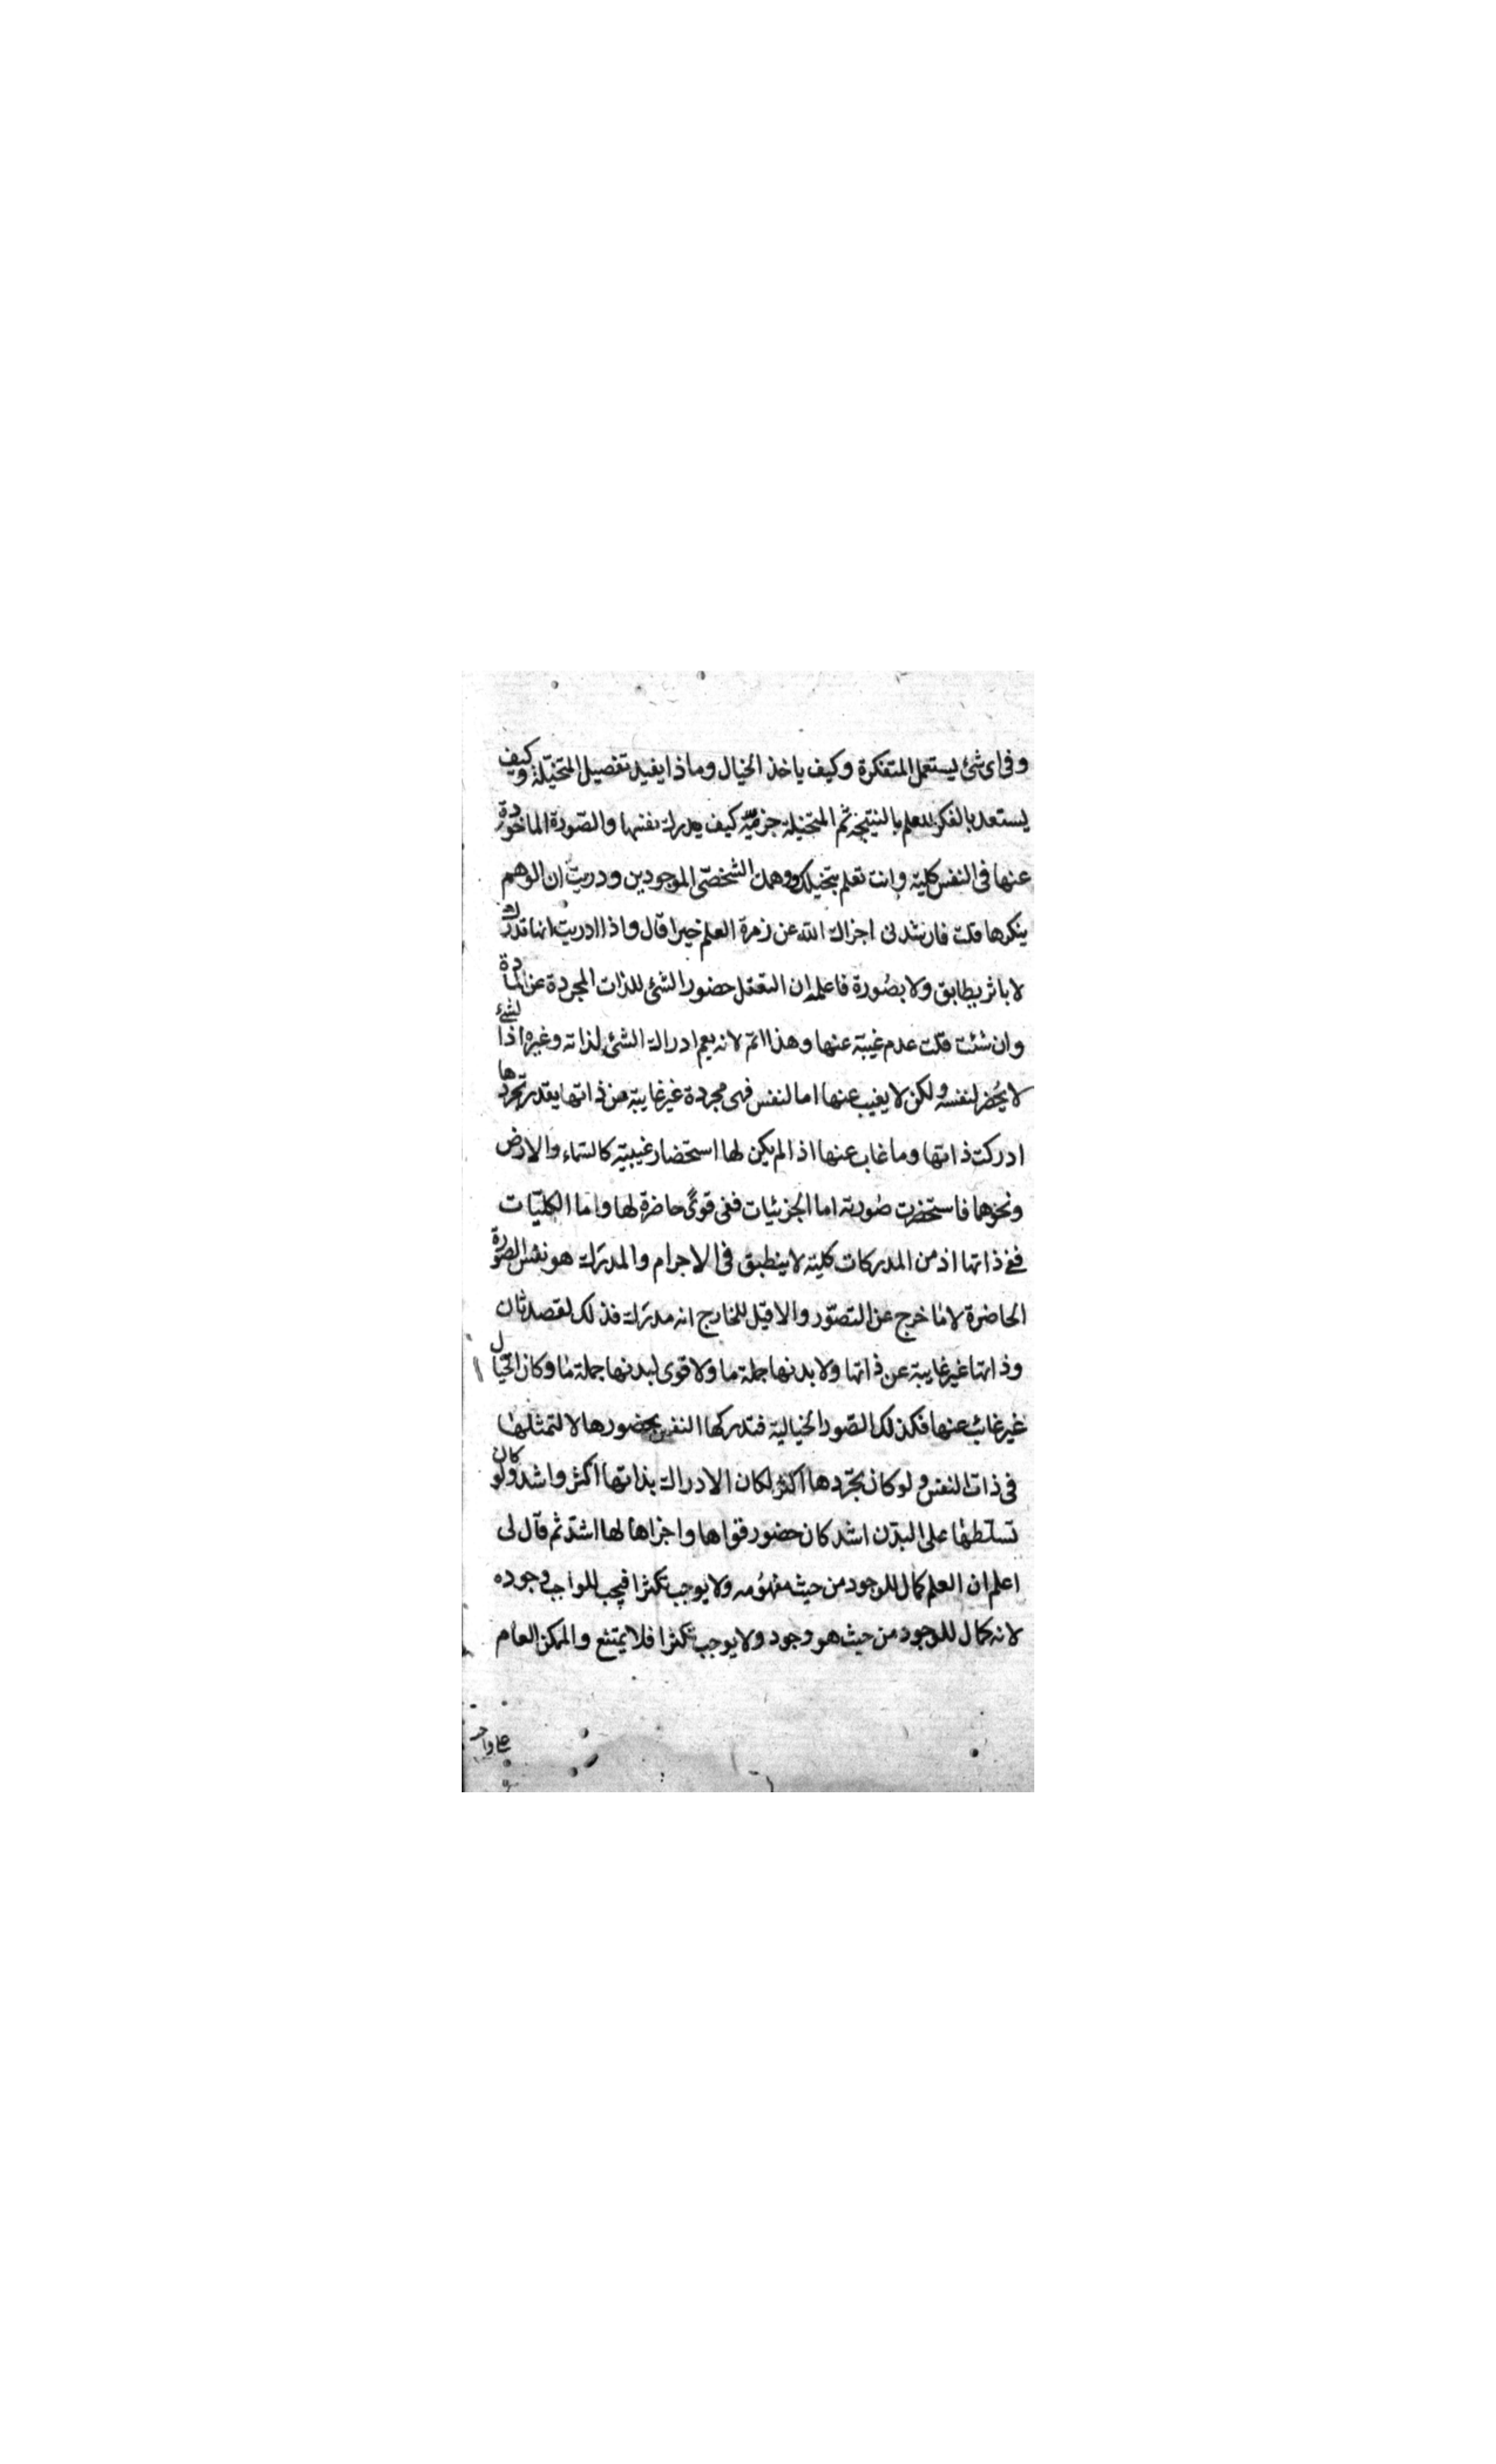 وفى اى شئ يستعمل المتفكرة وكيف ياخذ الخيال وماذا يفيد تفصيل المتخيّلة وكيف
يستعد بالفكر للعلم بالنتيجة ثم المتخيلة جزميّة كيف يدرك نفسها والصّورة الماخوذة
عنها فى النفس كلية وانت تعلم بتخيلك ووهمك الشخصّى الموجودين ودريت ان الوهم
ينكرها قلت فارشدنى اجزاك الله عن زمرة العلم خيرا قال واذا ادريت انها تدرك
لا باثر يطابق ولا بصورة فاعلم ان التعقل حضور الشئ للذات المجردة عن المادة
وان شئت قلت عدم غيبة عنها وهذا اتم لانه يعم ادراك الشئ لذاته وغيره اذ الشئ
لا يحُضر لنفسه ولكن لا يغيب عنها اما لنفس فهى مجردة غير غايبة من ذاتها يقدر تجردها
ادركت ذاتها وما غاب عنها اذا لم يكن لها استحضار غيبية كالسّماء والارض
ونحوهما فاستحضرت صورته اما الجزئيات ففى قوىً حاضرة لها واما الكليّات
ففى ذاتها اذ من المدركات كلية لا ينطبق فى الاجرام والمدرَك هو نفس الصّورة
الحاضرة لا ما خرج عن التصوّر والا قيل للخارج انه مدرَك فذلك لقصد ثان
وذاتها غير غايبة عن ذاتها ولا بدنها جملة ما ولا قوى لبدنها جملة ما وكان الخيال
غير غائب عنها فكذلك الصّور الخيالية فتدركها النفس بحضورها لا لتمثلها
فى ذات النفس ولو كان تجرّدها اكثر لكان الادراك بذاتها اكثر واشد ولو كان
تسلّطها على البدَن اشد كان حضور قواها واجزاها لها اشدّ ثم قال لى
اعلم ان العلم كمال للوجود من حيث مفهومه ولا يوجب تكثرا فيجب للواجب وجوده
لانه كمال للوجود من حيث هو وجود ولا يوجب تكثرا فلا يمتنع والممكن العام